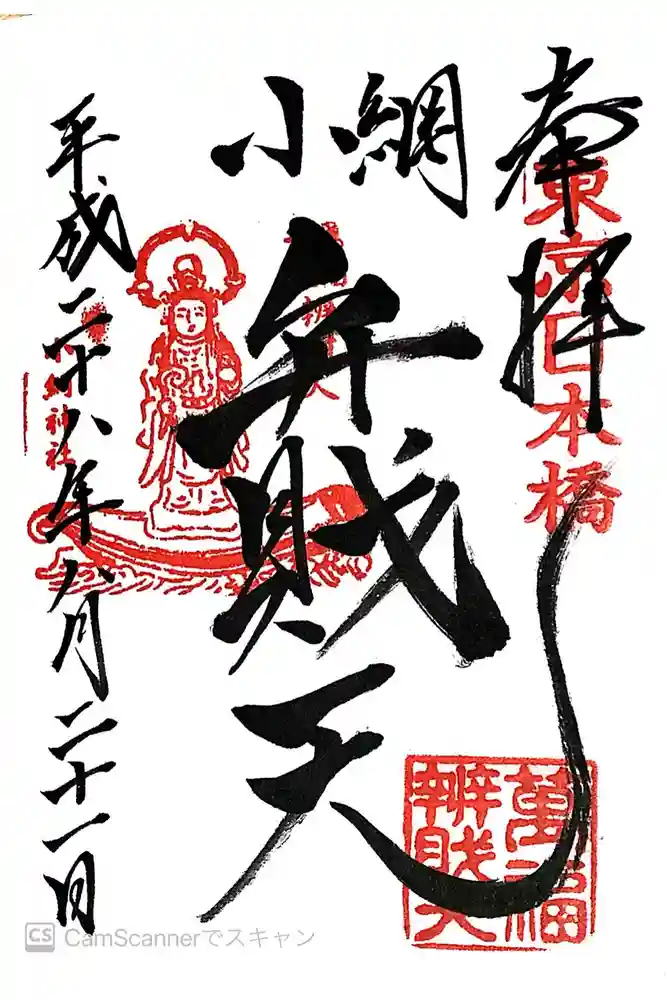 奉拝
東京日本橋
小網
弁賎天
萬福
辨財天
平成二十八年八月二十一日
神社
CS CamScannerでスキャン